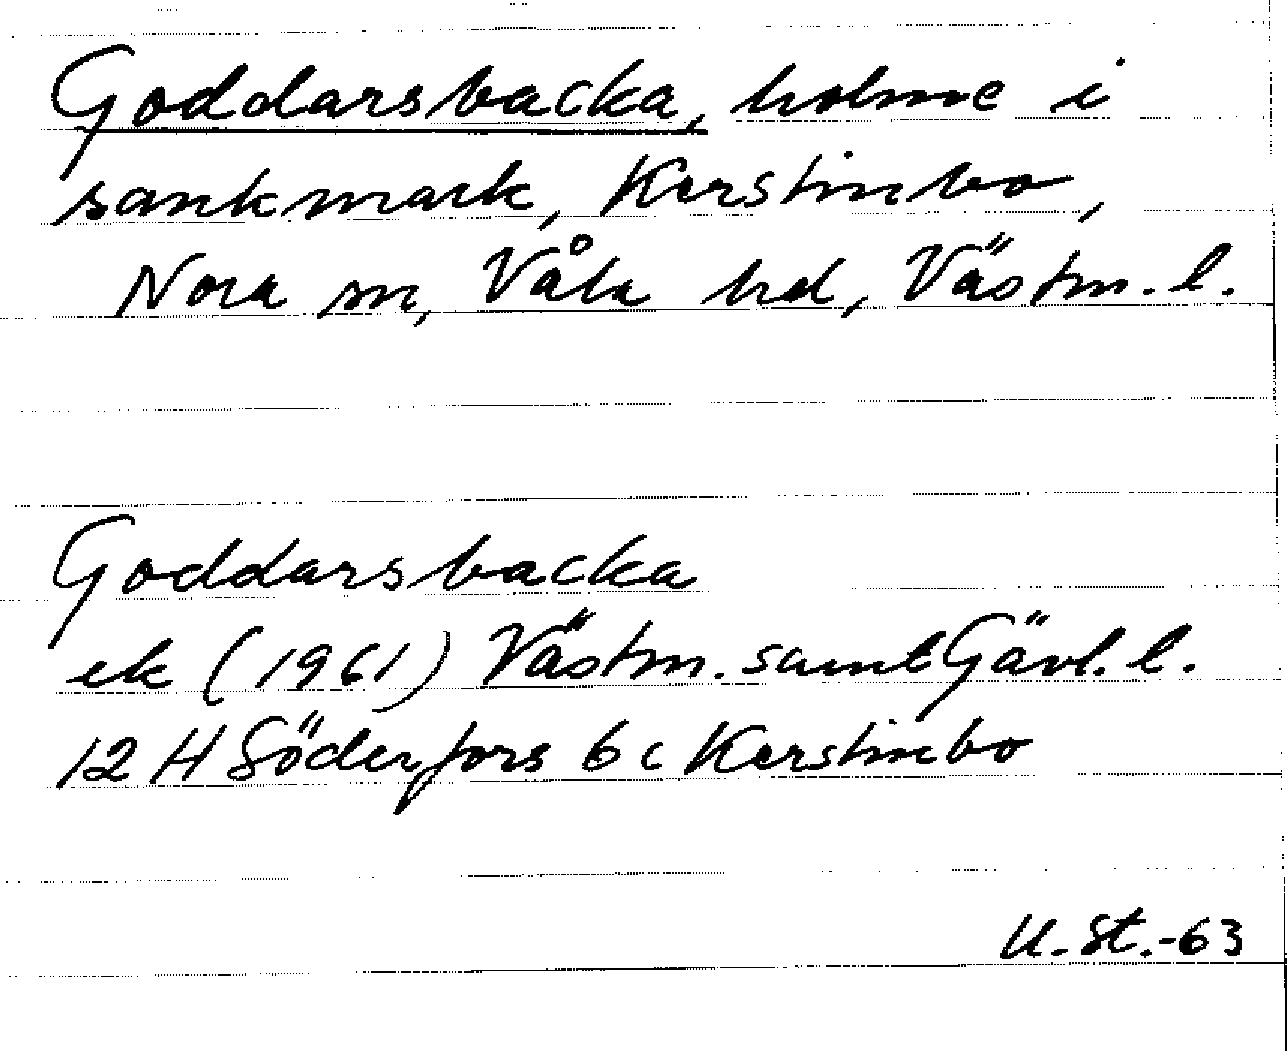 Goddarsbacka, holme i
sankmark, Kerstinbo,
Nora sn, Våla hd, Västm. l.
Goddarsbacka
ek (1961) Västm. samt Gävl. l.
12 H Söderfors 6 c Kerstinbo
U. St. -63